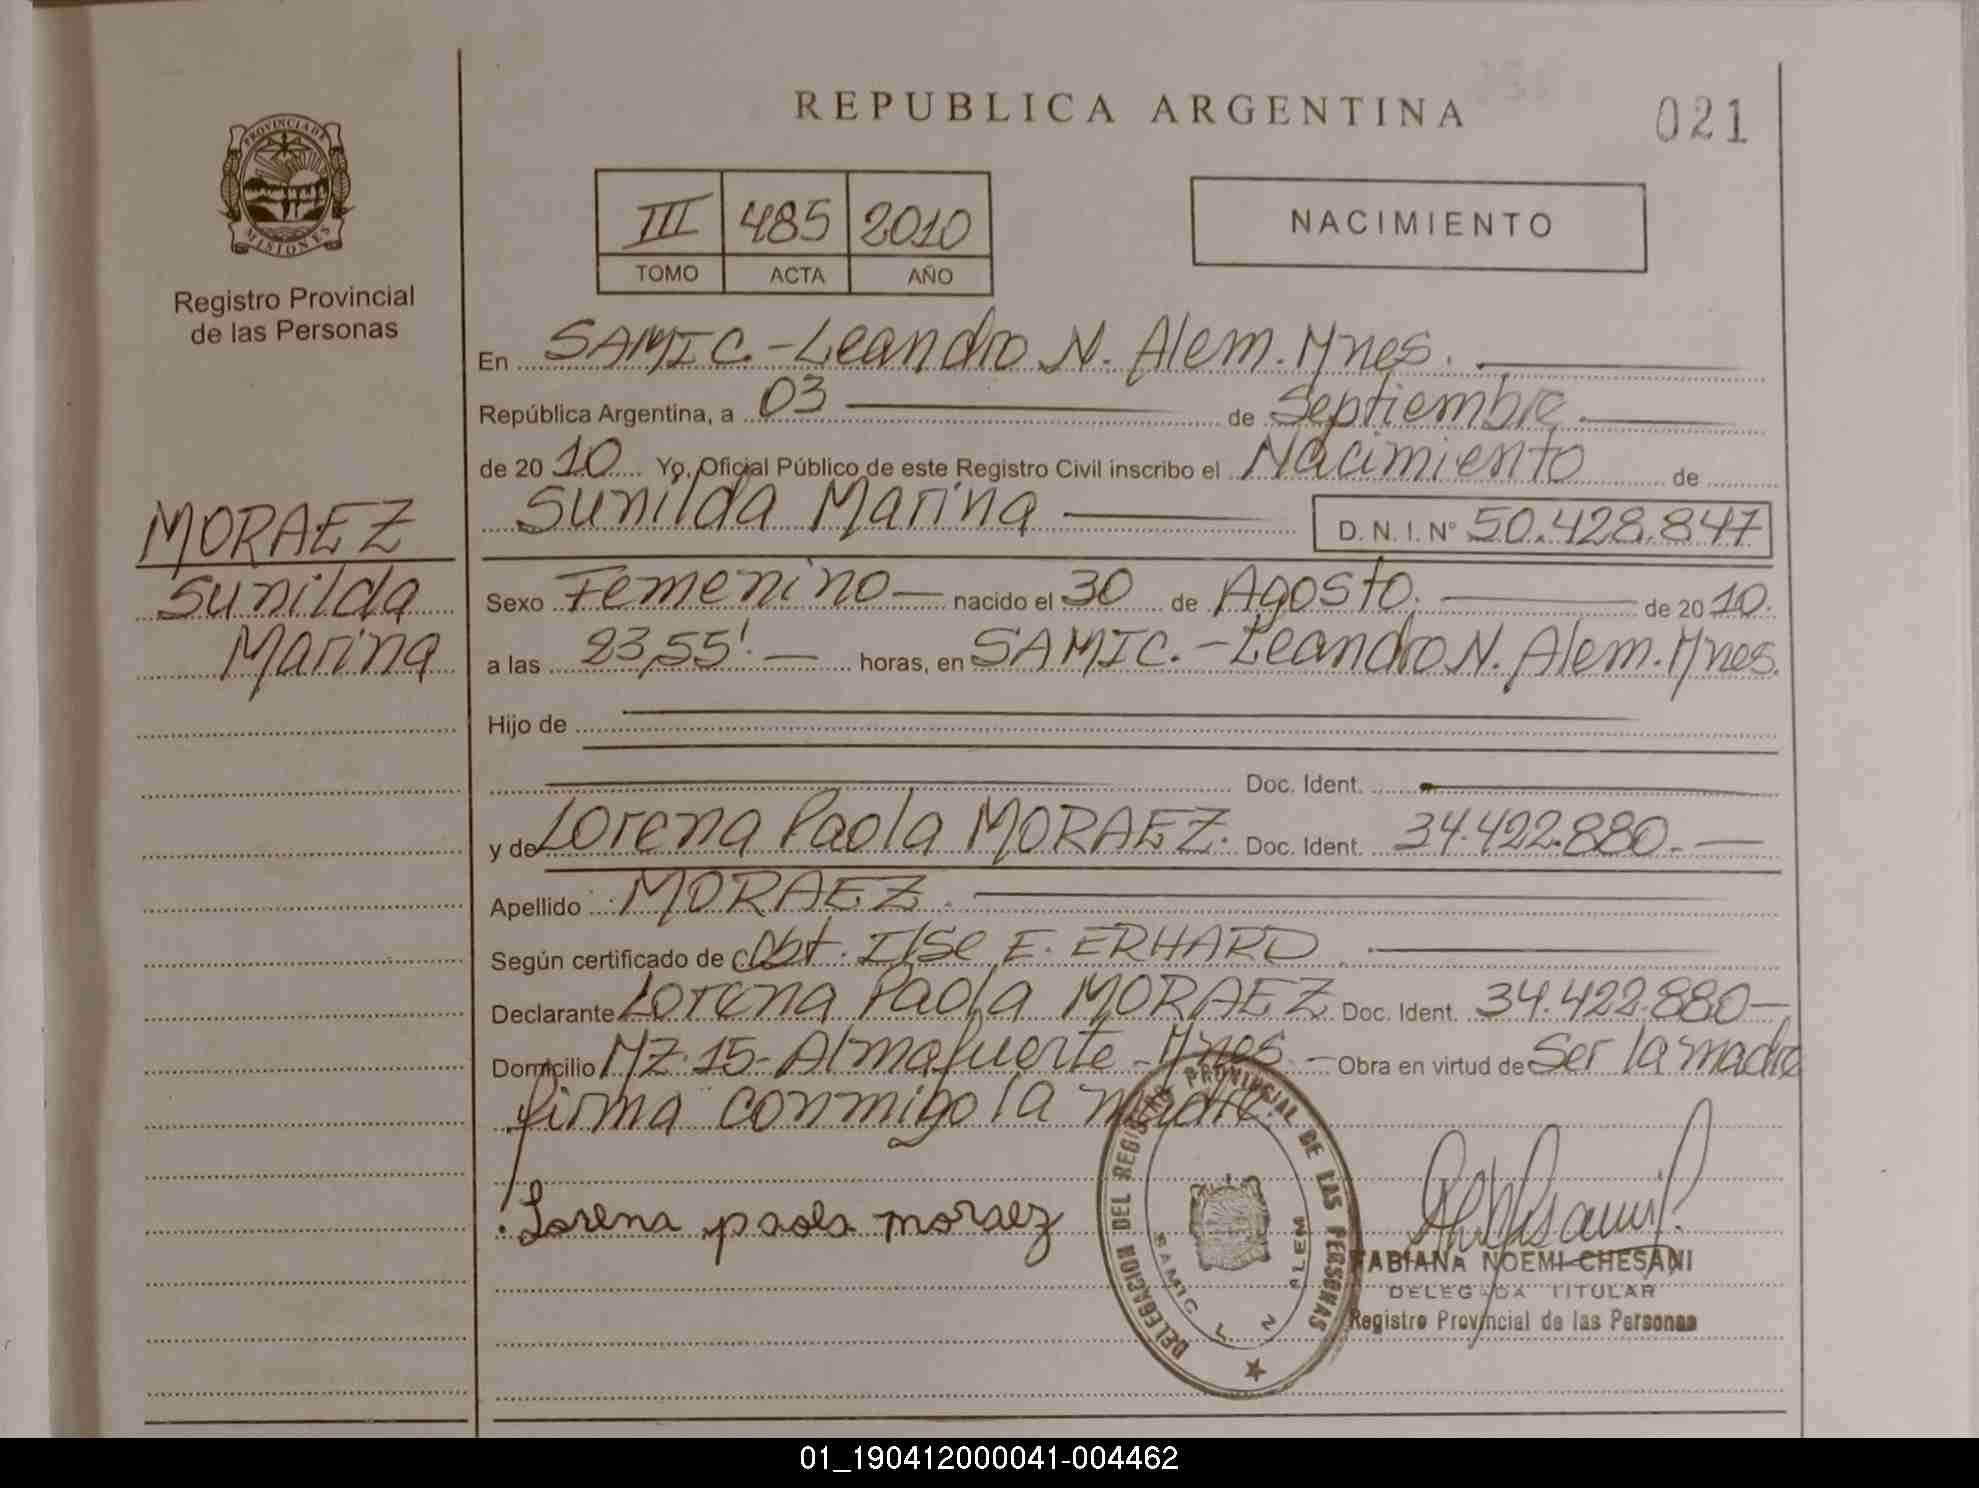 REPUBLICA ARGENTINA
021
PROVINCIA DE
MISIONES
Registro Provincial
de las Personas
III 485 2010
TOMO ACTA AÑO
NACIMIENTO
En SAMIC.-Leandro N. Alem. Mnes.
República Argentina, a 03 de Septiembre
de 2010 Yo, Oficial Público de este Registro Civil inscribo el Nacimiento de
Sunilda Marina D. N. I. Nº 50.428.847
MORAEZ
Sunilda
Marina
Sexo Femenino nacido el 30 de Agosto. de 2010.
a las 23,55'. horas, en SAMIC.-Leandro N. Alem. Mnes.
Hijo de
Doc. Ident.
y de Lorena Paola MORAEZ. Doc. Ident. 34.422.880.
Apellido MORAEZ.
Según certificado de Obt. Ilse E. ERHARD
Declarante Lorena Paola MORAEZ Doc. Ident. 34.422.880
Domicilio Mz. 15- Almafuerte - Mnes. Obra en virtud de Ser la madre
firma conmigo la madre.
Lorena paola moraez
DELEGACION DEL REGISTRO PROVINCIAL DE LAS PERSONAS
SAMIC L N ALEM
FABIANA NOEMI CHESANI
DELEGADA TITULAR
Registro Provincial de las Personas
01_190412000041-004462